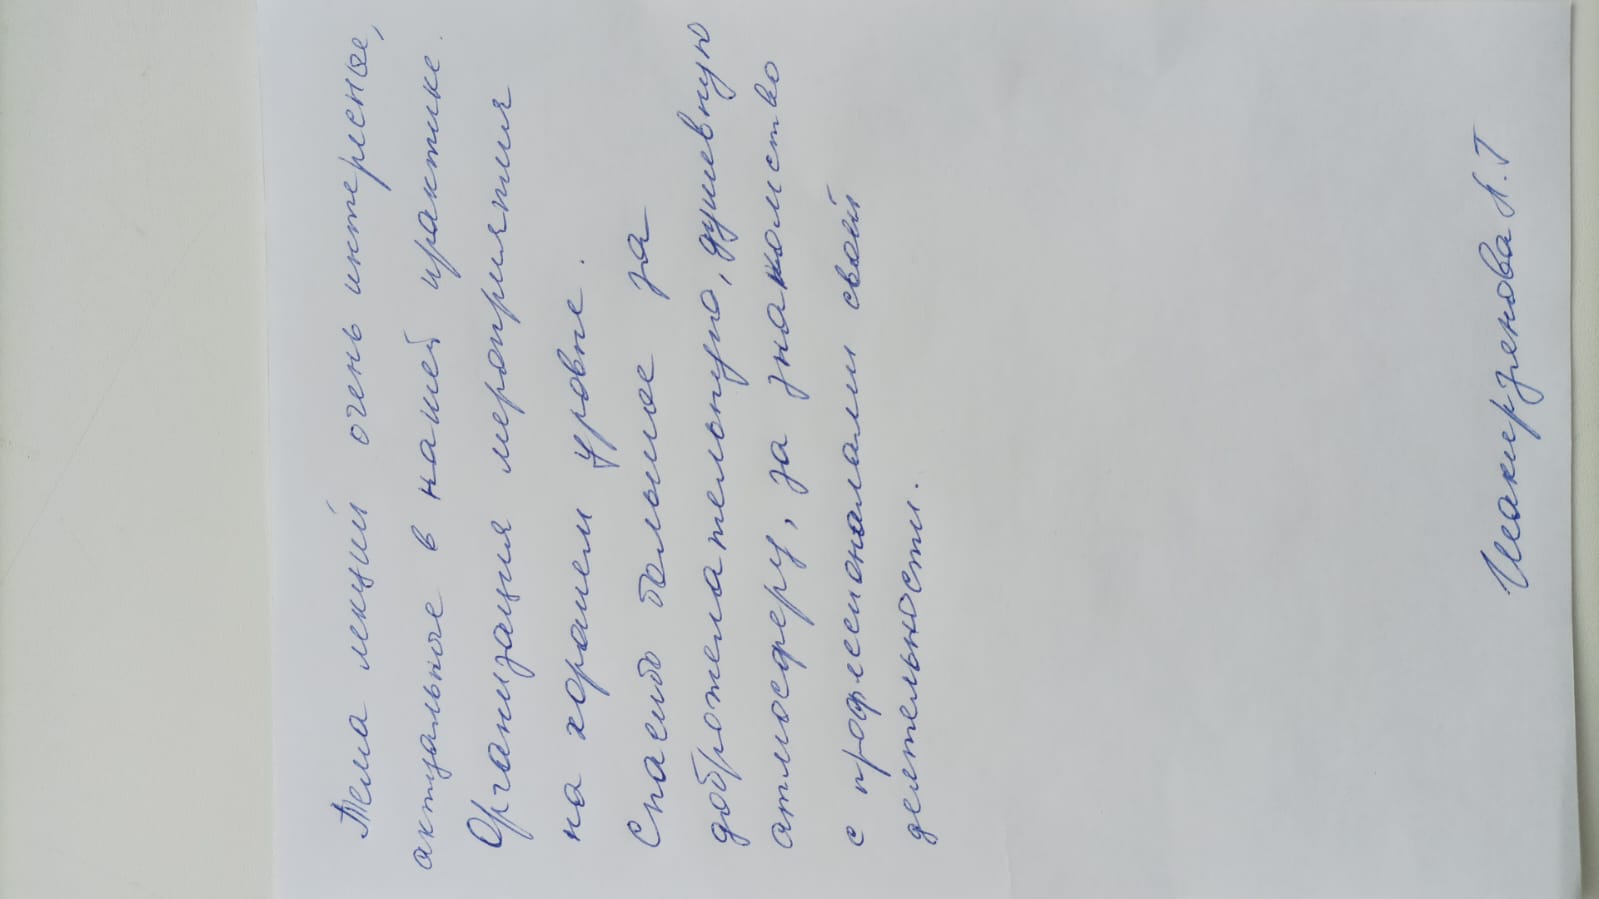 Тема лекций очень интересные,
актуальные в нашей практике.
Организация мероприятия
на хорошем уровне.
Спасибо большое за
доброжелательную, душевную
атмосферу, за знакомство
с профессионалами своей
деятельности.
Шакирзенова А.Т